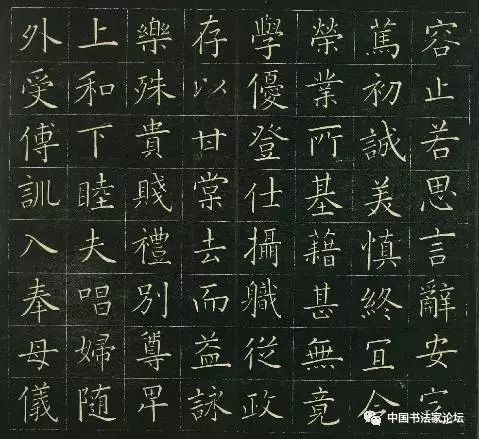 容止若思言辭安定
篤初誠美慎終宜令
榮業所基藉甚無竟
學優登仕攝職從政
存以甘棠去而益詠
樂殊貴賤禮別尊卑
上和下睦夫唱婦隨
外受傅訓入奉母儀
中国书法家论坛